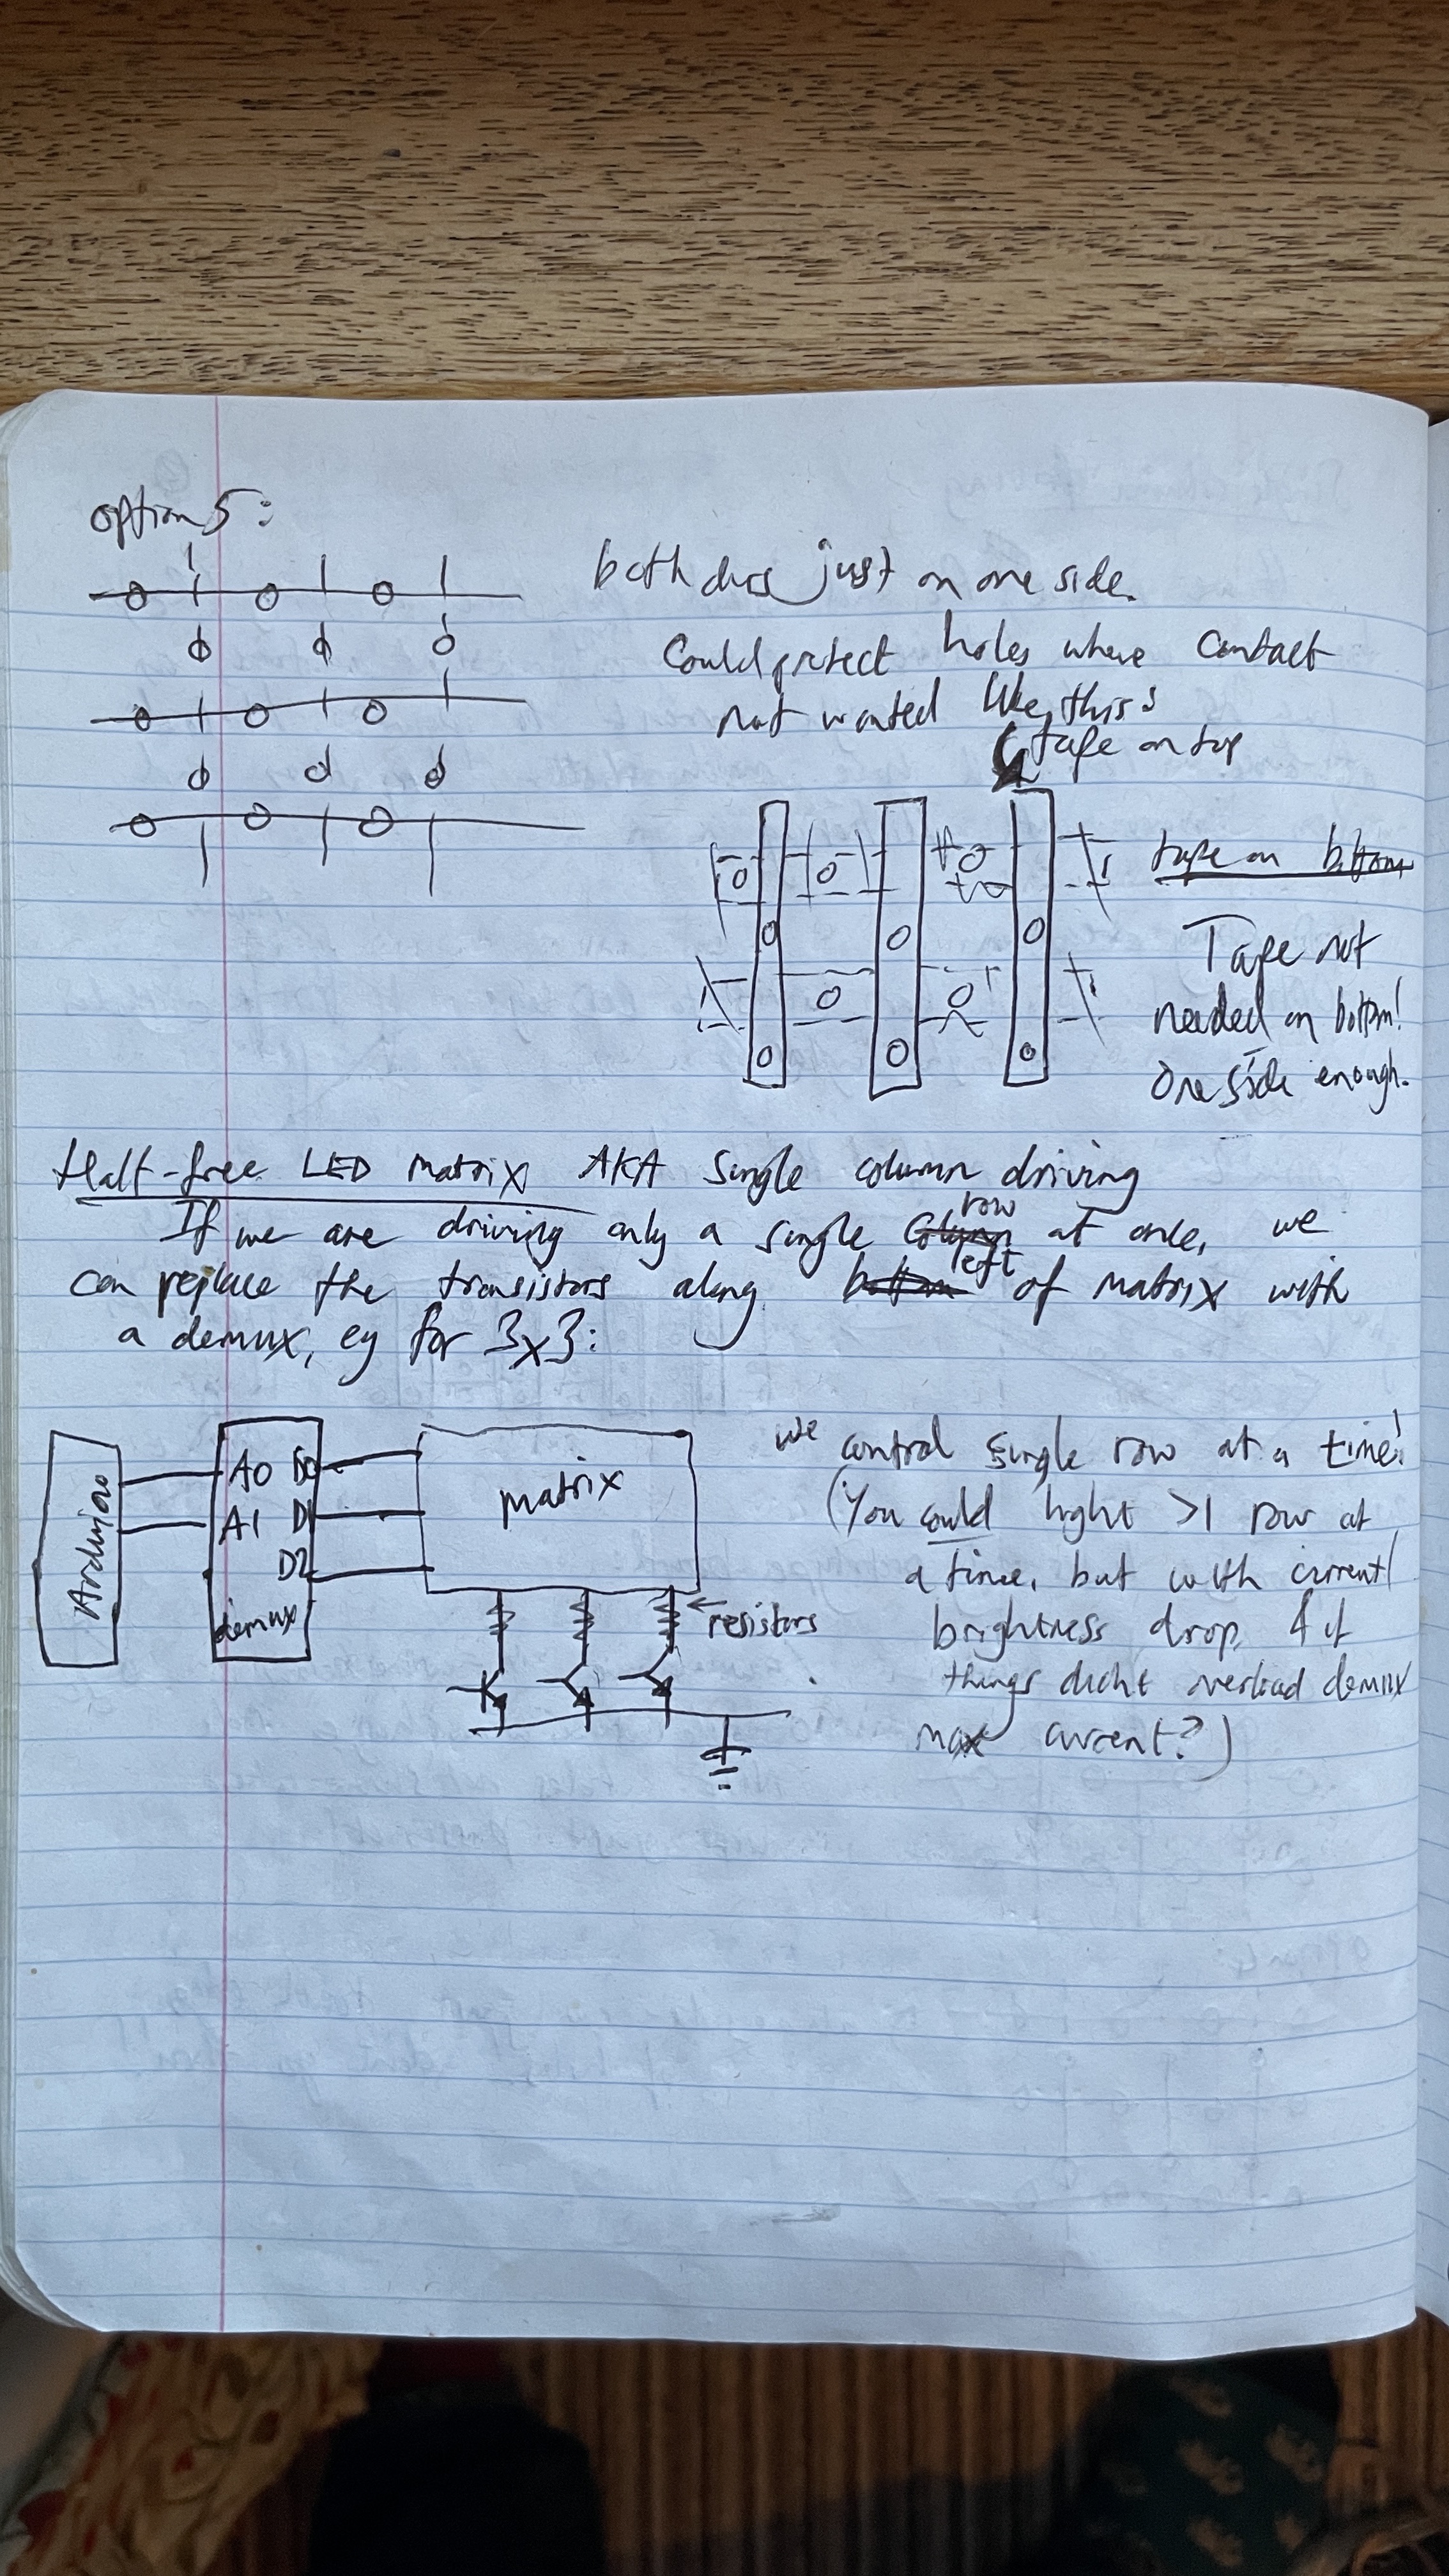 option 5:
both dirs just on one side.
Could protect holes where contact
not wanted like this:
tape on top
tape on bottom
Tape not
needed on bottom!
One side enough.
Half-free LED matrix AKA single column driving
If we are driving only a single column row at once, we
can replace the transistors along bottom left of matrix with
a demux, eg for 3x3:
Arduino
A0 D0
A1 D1
D2
demux
matrix
resistors
we control single row at a time!
(You could light >1 row at
a time, but with current/
brightness drop, & if
things didn't overload demux
max current?)